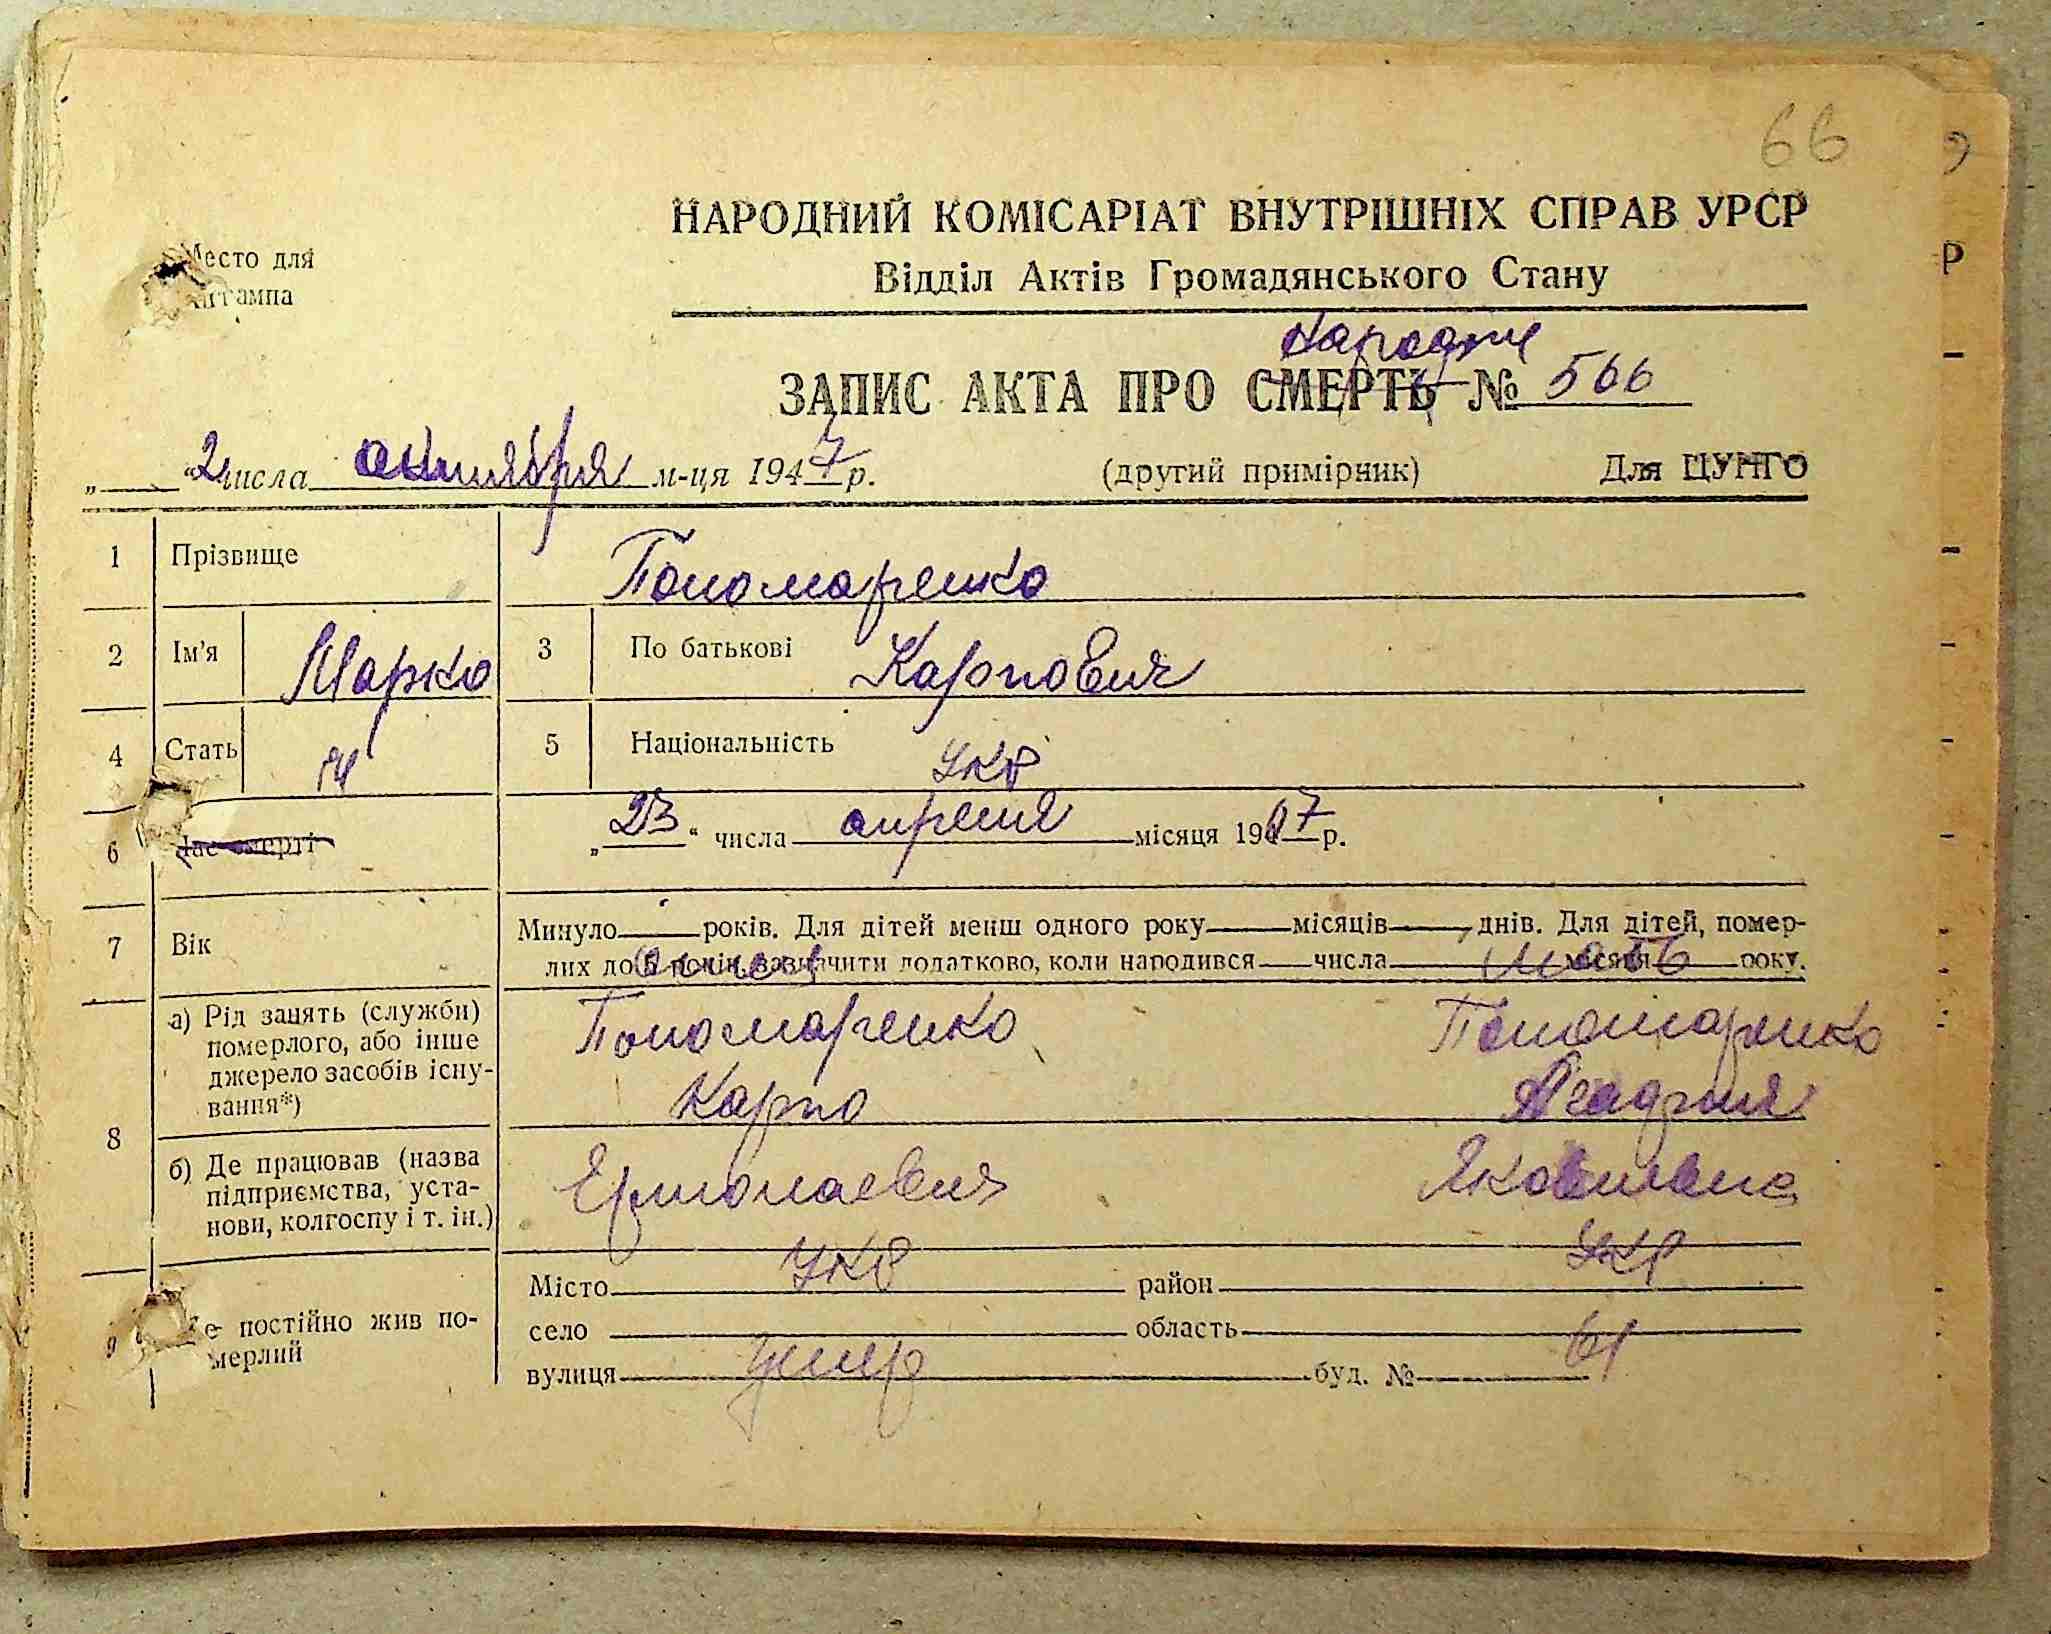 66
НАРОДНИЙ КОМІСАРІАТ ВНУТРІШНІХ СПРАВ УРСР
Место для
штампа
Відділ Актів Громадянського Стану
ЗАПИС АКТА ПРО СМЕРТЬ № 566
„ “ 2 числа октября м-ця 1947 р. (другий примірник) Для ЦУНГО
1 Прізвище Пономаренко
2 Ім’я Марко 3 По батькові Карпович
4 Стать М 5 Національність укр
6 Час смерті „23“ числа апреля місяця 1907 р.
7 Вік Минуло років. Для дітей менш одного року місяців днів. Для дітей, помер-
лих до 5 років, зазначити додатково, коли народився числа місяця року.
отец мать
8 а) Рід занять (служби)
померлого, або інше
джерело засобів існу-
вання*)
Пономаренко Пономаренко
Карпо
б) Де працював (назва
підприємства, уста-
нови, колгоспу і т. ін.)
Ермолаевич Яковлевна
укр укр
9 Де постійно жив по-
мерлий
Місто район
село область
вулиця умер буд. № 61